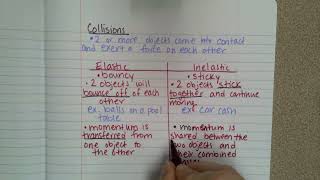 Collisions
• 2 or more objects come into contact
and exert a force on each other
Elastic
• bouncy
• 2 objects will
bounce off of each
other
ex. balls on a pool
table
• momentum is
transferred from
one object to
the other
Inelastic
• sticky
• 2 objects stick
together and continue
moving
ex. car cash
• momentum is
shared between the
two objects and
their combined